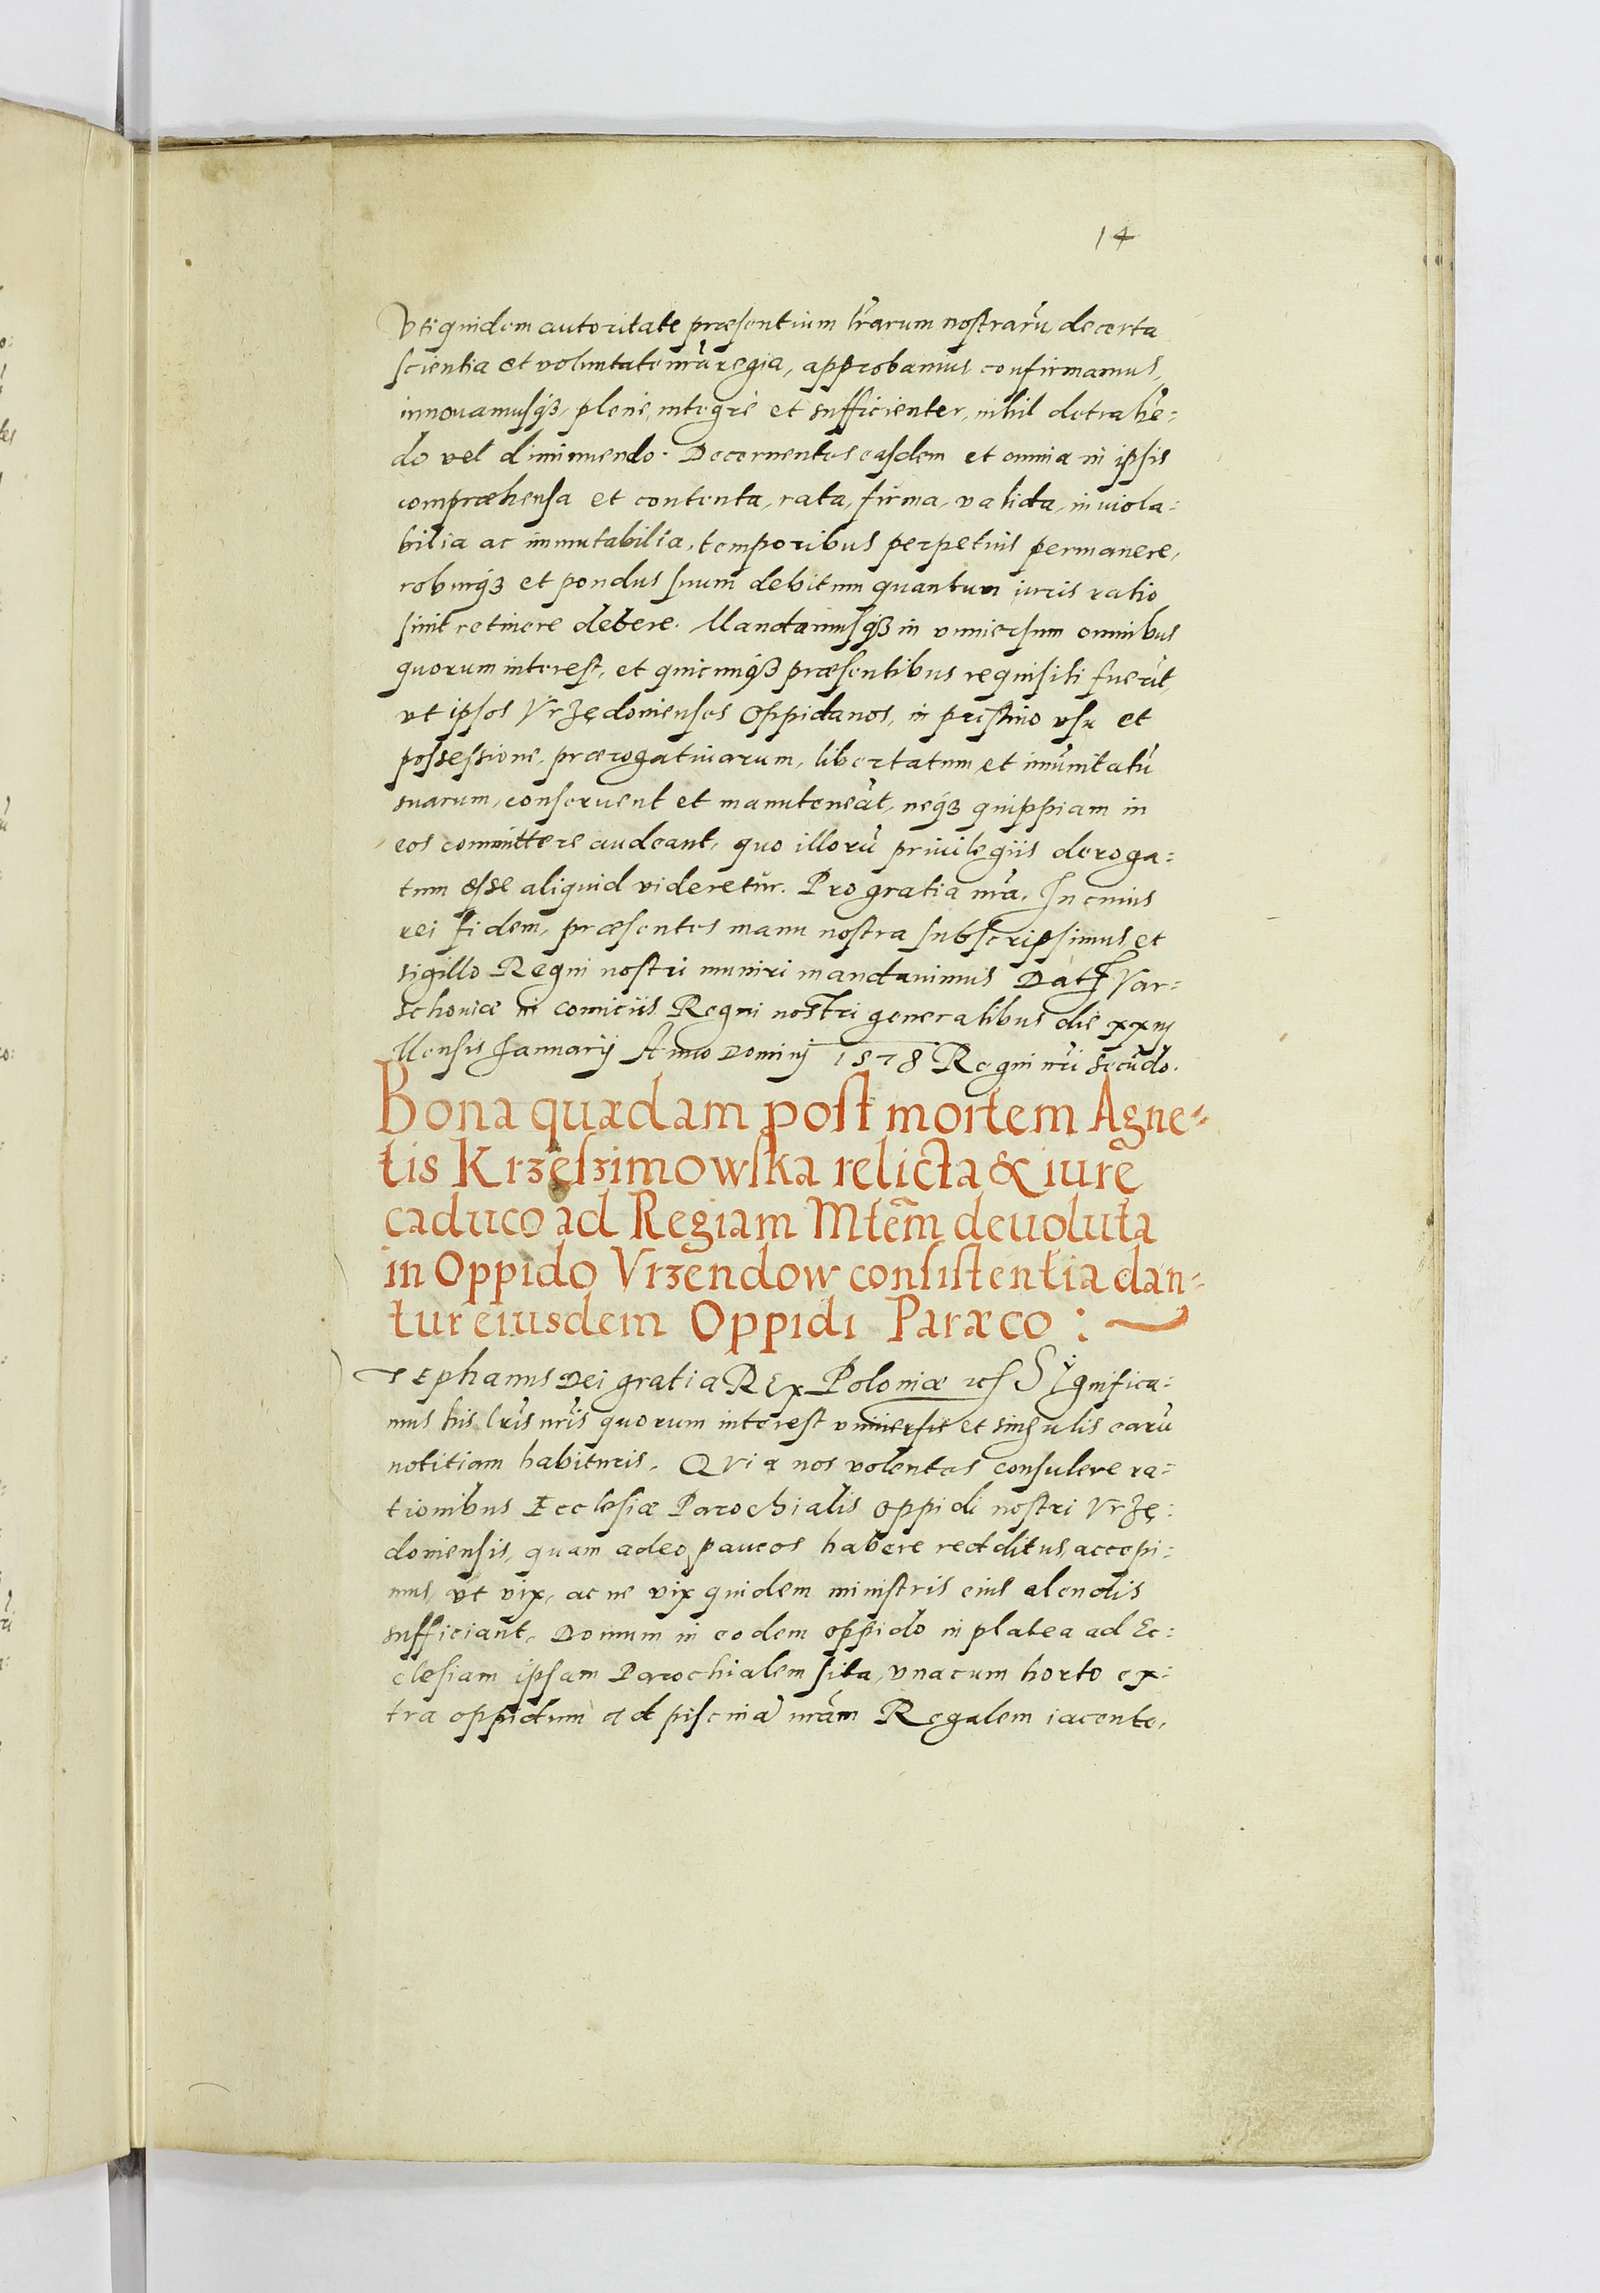 14
Vti quidem autoritate præsentium lr̃arum nostrarũ de certa
scientia et voluntate nr̃a regia, approbamus confirmamus,
innouamusqȝ, plene, integrè et sufficienter, nihil detrahẽ=
do vel diminuendo. Decernentes easdem et omnia in ipsis
compræhensa et contenta, rata, firma, valida, inuiola=
bilia ac immutabilia, temporibus perpetuis permanere,
roburqȝ et pondus suum debitum quantum iuris ratio
sinit retinere debere. Mandamusqȝ in vniuersum omnibus
quorum interest, et quicunqȝ præsentibus requisiti fuerĩt,
vt ipsos Vrzędouienses Oppidanos, in pristino vsu et
possessione, prærogatiuarum, libertatum et imũnitatũ
suarum, conseruent et manuteneãt, neqȝ quippiam in
eos committere audeant, quo illorũ priuilegiis deroga=
tum esse aliquid videretur. Pro gratia nr̃a. In cuius
rei fidem, præsentes manu nostra subscripsimus et
sigillo Regni nostri muniri mandauimus Dat Var=
schouiæ in comiciis Regni nostri generalibus die xxiij
Mensis Januarij Anno Dominj 1578 Regni nr̃i secũdo.
Bona quædam post mortem Agne=
tis Krzeszimowska relicta & iure
caduco ad Regiam Mtẽm deuoluta
in Oppido Vrzendow consistentia dan=
tur eiusdem Oppidi Paræco :
Stephanus Dei gratia REx Poloniæ etc Significa=
mus his lr̃is nr̃is quorum interest vniuersis et singulis earũ
notitiam habituris. QVia nos volentes consulere ra=
tionibus Ecclesiæ Parochialis oppidi nostri Vrzę=
douiensis, quam adeo paucos habere redditus accepi=
mus, vt vix, ac ne vix quidem ministris eius alendis
sufficiant, Domum in eodem oppido in platea ad Ec=
clesiam ipsam Parochialem sita, vna cum horto ex=
tra oppidum ad piscinã nr̃am Regalem iacente,